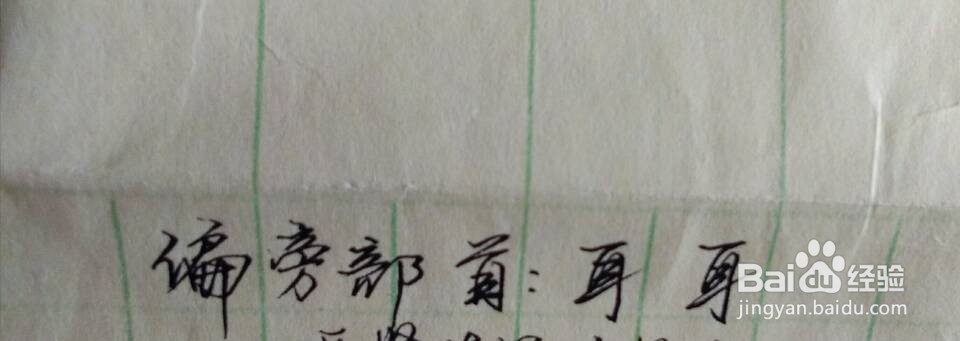 偏旁部首：耳 耳
Baidu经验
jingyan.baidu.com